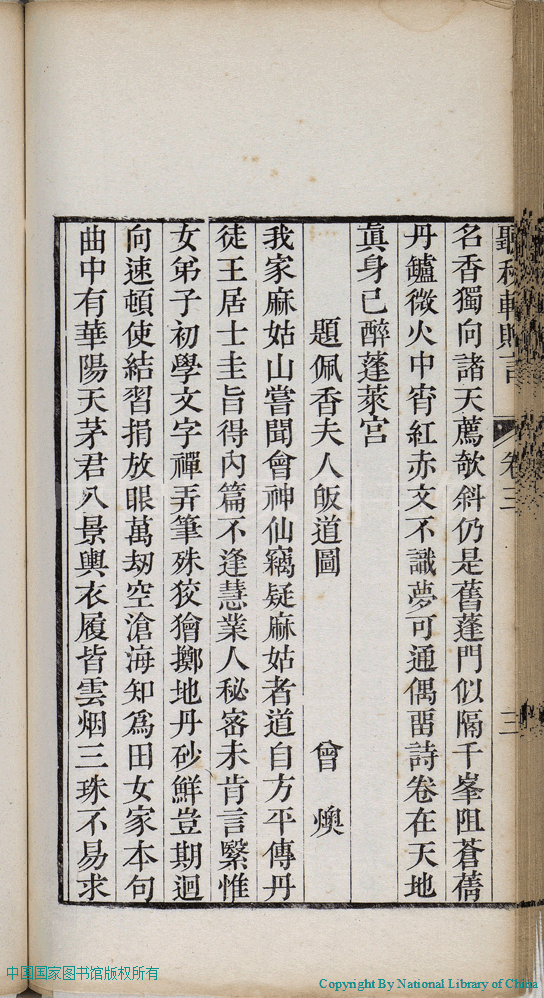 聽秋軒贈言 卷三 三
名香獨向諸天薦欹斜仍是舊蓬門似隔千峯阻蒼蒨
丹鑪微火中宵紅赤文不識夢可通偶畱詩卷在天地
眞身已醉蓬萊宮
題佩香夫人皈道圖 曾燠
我家麻姑山嘗聞會神仙竊疑麻姑者道自方平傳丹
徒王居士圭旨得內篇不逢慧業人秘密未肯言繄惟
女弟子初學文字禪弄筆殊狡獪擲地丹砂鮮豈期迴
向速頓使結習捐放眼萬劫空滄海知為田女家本句
曲中有華陽天茅君八景輿衣履皆雲烟三珠不易求
中国国家图书馆版权所有
Copyright By National Library of China